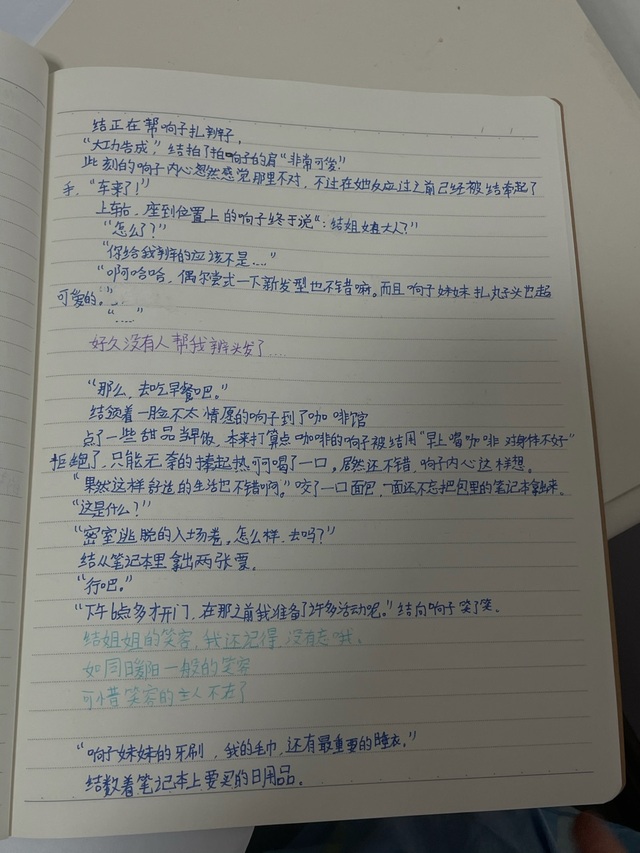 结正在帮响子扎辫子，
“大功告成，”结拍了拍响子的肩“非常可爱！”
此刻的响子内心忽然感觉那里不对，不过在她反应过之前已经被结牵起了
手，“车来了！”
上车后，座到位置上的响子终于说“：结姐姐大人？”
“怎么了？”
“你给我辫的应该不是……”
“啊哈哈，偶尔尝试一下新发型也不错嘛。而且响子妹妹扎丸子头也超
可爱的。”
“……”
好久没有人帮我辫头发了……
“那么，去吃早餐吧。”
结领着一脸不太情愿的响子到了咖啡馆
点了一些甜品当早饭，本来打算点咖啡的响子被结用“早上喝咖啡对身体不好”
拒绝了，只能无奈的捧起热可可喝了一口，居然还不错，响子内心这样想。
“果然这样舒适的生活也不错啊。”咬了一口面包，一面还不忘把包里的笔记本拿出来。
“这是什么？”
“密室逃脱的入场卷，怎么样，去吗？”
结从笔记本里拿出两张票。
“行吧。”
“下午6点多才开门，在那之前我准备了许多活动呢。”结向响子笑了笑。
结姐姐的笑容，我还记得，没有忘哦。
如同日暖阳一般的笑容
可惜笑容的主人不在了
“响子妹妹的牙刷，我的毛巾，还有最重要的睡衣。”
结数着笔记本上要买的日用品。